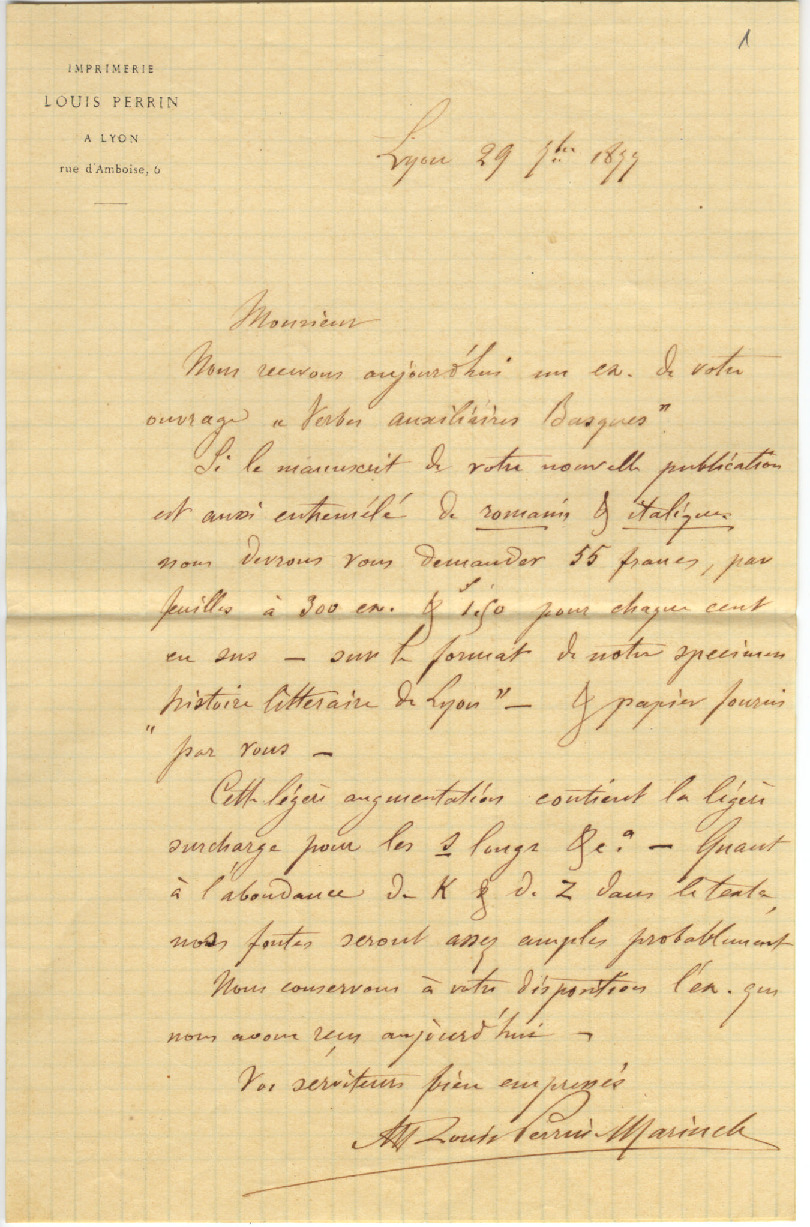 1
IMPRIMERIE
LOUIS PERRIN
A LYON
rue d'Amboise, 6
Lyon 29 7bre 1877
Monsieur
Nous recevons aujourd'hui un ex. de votre
ouvrage « Verbes auxiliaires Basques"
Si le manuscrit de votre nouvelle publication
est aussi entremélé de romains & italiques
nous devrons vous demander 55 francs, par
feuilles à 300 ex. & pour chaque cent
en sus — sur le format de notre specimen
histoire litteraire de Lyon" — & papier fourni
" par vous —
Cette légère augmentation contient la légère
surcharge pour les s longs &c.a — Quant
à l'abondance de K & de Z dans le texte,
nos fontes seront assez amples probablement
Nous conservons à votre disposition l'ex. que
nous avons reçu aujourd'hui —
Vos serviteurs bien empressés
Louis Perrin & Marinet